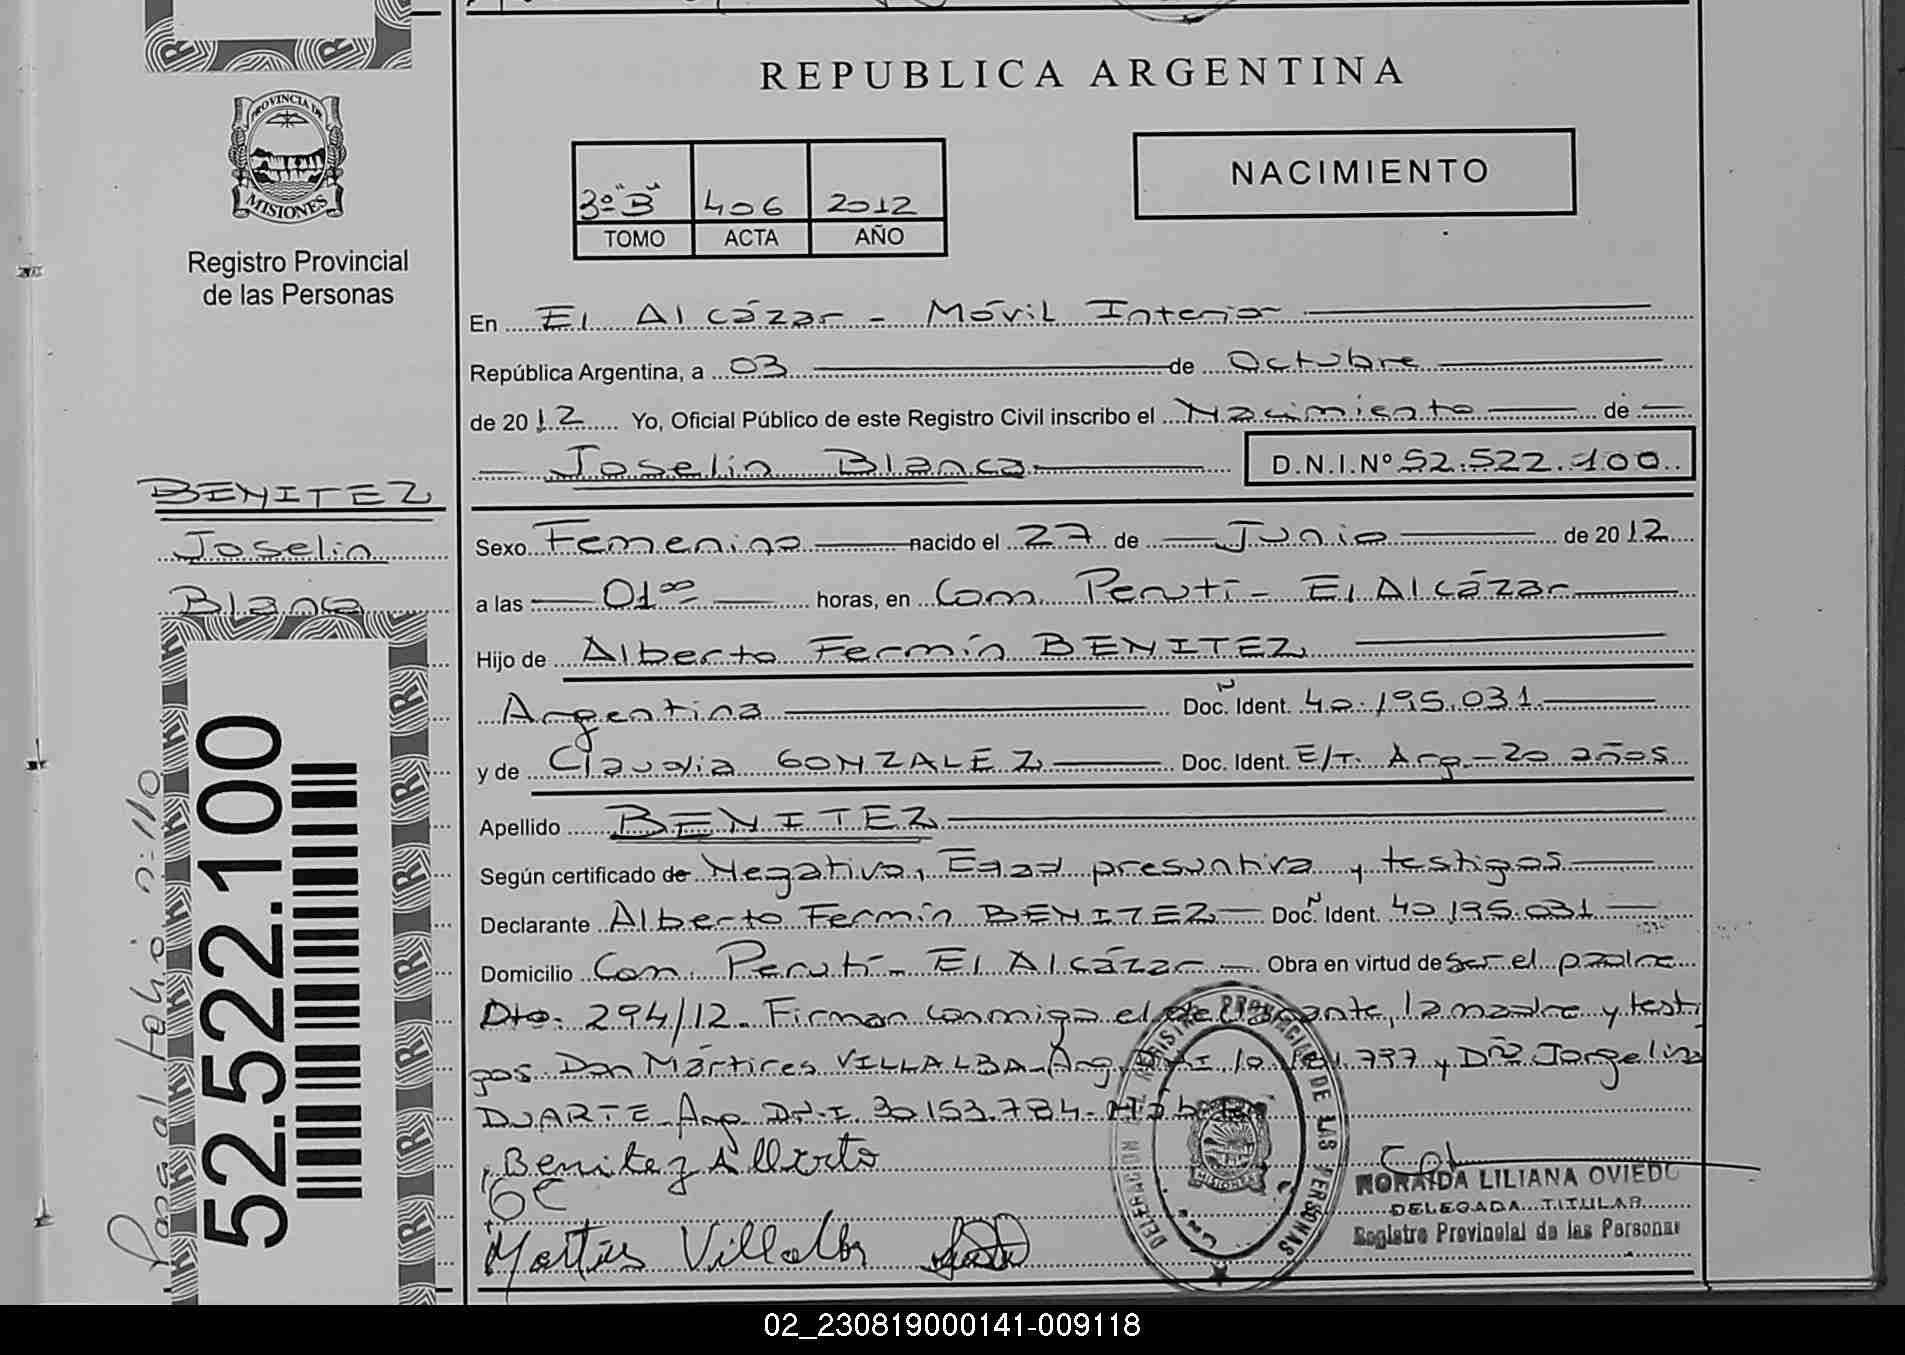 REPUBLICA ARGENTINA
PROVINCIA DE
MISIONES
Registro Provincial
de las Personas
NACIMIENTO
3º "B" 406 2012
TOMO ACTA AÑO
En El Alcázar - Móvil Interior
República Argentina, a 03 de Octubre
de 2012 Yo, Oficial Público de este Registro Civil inscribo el Nacimiento de
Joselin Blanca D.N.I.Nº 52.522.100
BENITEZ
Joselin
Blanca
Sexo Femenino nacido el 27 de Junio de 2012
a las 01ºº horas, en Com Perutí - El Alcázar
Hijo de Alberto Fermín BENITEZ
Argentina Doc. Ident. 40.195.031
y de Claudia GONZALEZ Doc. Ident. E/T. Arg - 20 años
Apellido BENITEZ
Según certificado de Negativo, Edad presuntiva y testigos
Declarante Alberto Fermín BENITEZ Doc. Ident. 40.195.031
Domicilio Com Perutí - El Alcázar Obra en virtud de ser el padre
Dto. 294/12. Firman conmigo el declarante, la madre y testi
gos Don Mártires VILLALBA - Arg. 737 y Dña Jorgelina
DUARTE Arg. D.N.I. 30.153.784 -
Benitez Alberto
GC
Martires Villalba
NORAIDA LILIANA OVIEDO
DELEGADA TITULAR
Registro Provincial de las Personas
REGISTRO PROVINCIAL DE LAS PERSONAS
DELEGACION
MISIONES
Pasa al folio nº 110
52.522.100
02_230819000141-009118